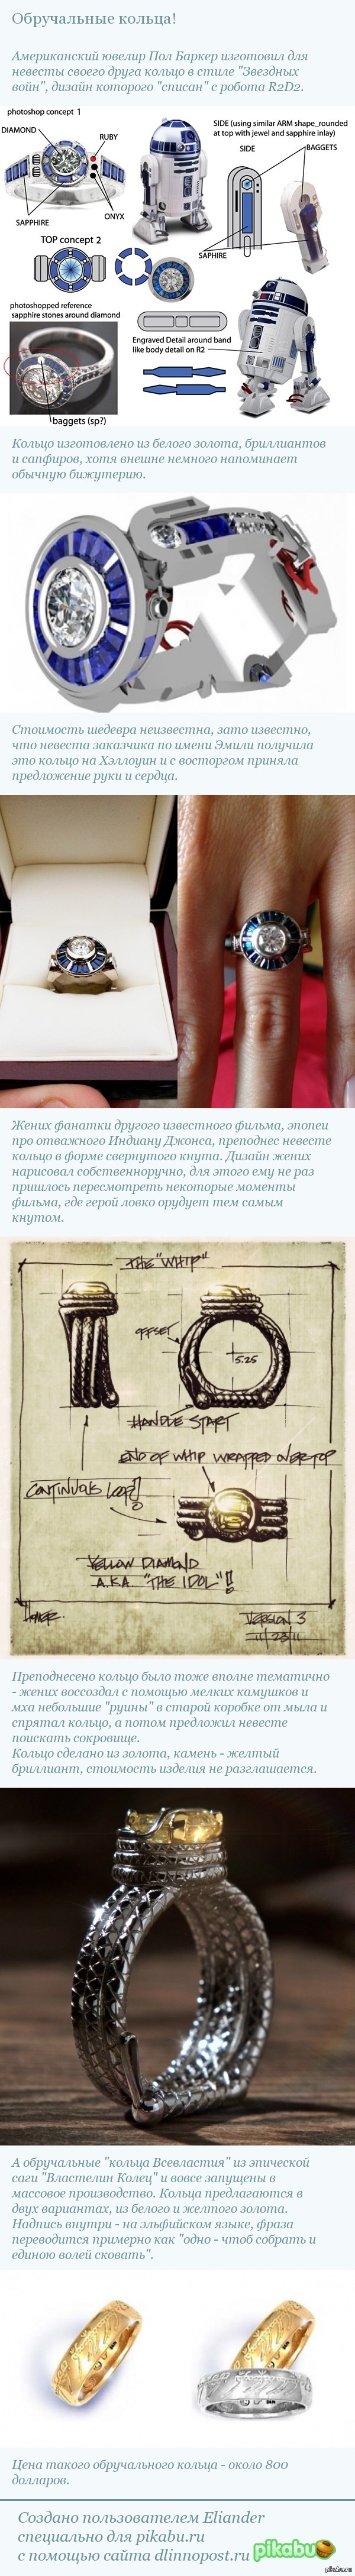 Обручальные кольца!
Американский ювелир Пол Баркер изготовил для
невесты своего друга кольцо в стиле "Звездных
войн", дизайн которого "списан" с робота R2D2.
photoshop concept 1
DIAMOND
RUBY
ONYX
SAPPHIRE
SIDE (using similar ARM shape_rounded
at top with jewel and sapphire inlay)
SIDE
BAGGETS
SAPHIRE
TOP concept 2
photoshopped reference
sapphire stones around diamond
Engraved Detail around band
like body detail on R2
baggets (sp?)
Кольцо изготовлено из белого золота, бриллиантов
и сапфиров, хотя внешне немного напоминает
обычную бижутерию.
Стоимость шедевра неизвестна, зато известно,
что невеста заказчика по имени Эмили получила
это кольцо на Хэллоуин и с восторгом приняла
предложение руки и сердца.
Жених фанатки другого известного фильма, эпопеи
про отважного Индиану Джонса, преподнес невесте
кольцо в форме свернутого кнута. Дизайн жених
нарисовал собственноручно, для этого ему не раз
пришлось пересмотреть некоторые моменты
фильма, где герой ловко орудует тем самым
кнутом.
THE "WHIP"
OFFSET
5.25
HANDLE START
END OF WHIP WRAPPED OVER TOP
CONTINUOUS LOOP?
YELLOW DIAMOND
A.K.A "THE IDOL"!!
VERSION 3
11/23/11
Преподнесено кольцо было тоже вполне тематично
- жених воссоздал с помощью мелких камушков и
мха небольшие "руины" в старой коробке от мыла и
спрятал кольцо, а потом предложил невесте
поискать сокровище.
Кольцо сделано из золота, камень - желтый
бриллиант, стоимость изделия не разглашается.
А обручальные "кольца Всевластия" из эпической
саги "Властелин Колец" и вовсе запущены в
массовое производство. Кольца предлагаются в
двух вариантах, из белого и желтого золота.
Надпись внутри - на эльфийском языке, фраза
переводится примерно как "одно - чтоб собрать и
единою волей сковать".
Цена такого обручального кольца - около 800
долларов.
Создано пользователем Eliander
специально для pikabu.ru
с помощью сайта dlinnopost.ru
pikabu
pikabu.ru